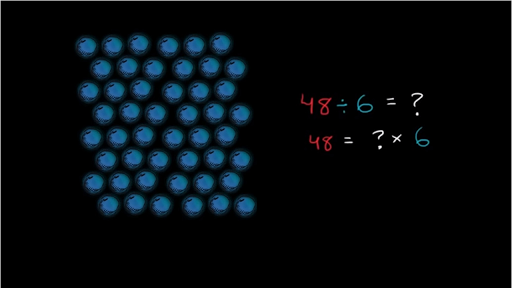 48 ÷ 6 = ?
48 = ? × 6